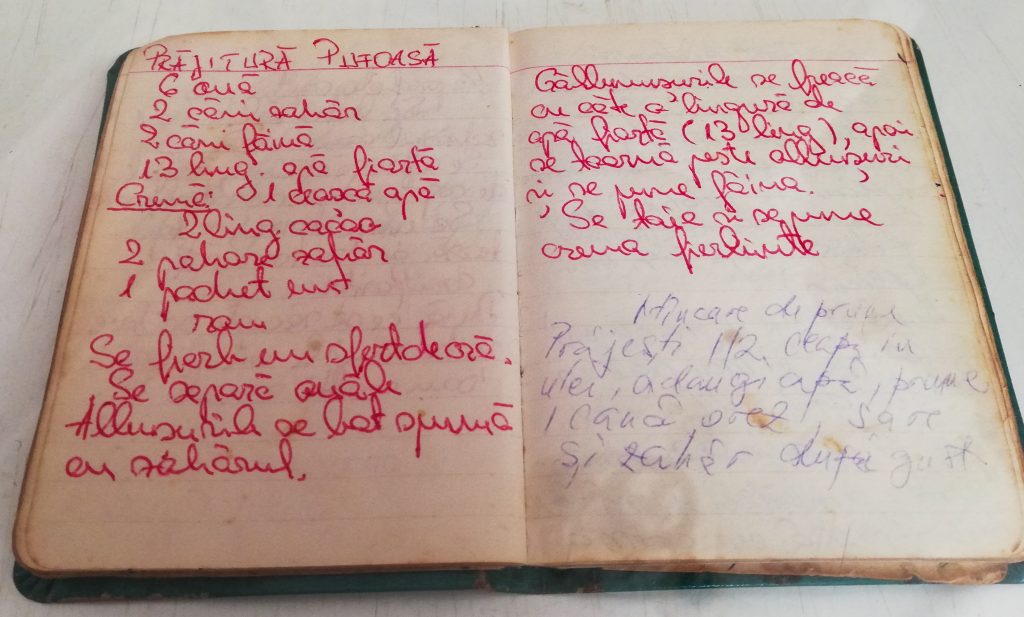 PRĂJITURĂ PUFOASĂ
6 ouă
2 căni zahăr
2 căni făină
13 ling. apă fiartă
Cremă: 1 ceașcă apă
2 ling. cacao
2 pahare zahăr
1 pachet unt
rom
Se fierb un sfert de oră.
Se separă ouăle
Albușurile se bat spumă
cu zahărul.
Gălbenușurile se freacă
cu câte o lingură de
apă fiartă (13 ling), apoi
se toarnă peste albușuri
și se pune făina.
Se taie și se pune
crema fierbinte
Mîncare de prune
Prăjești 1/2 ceapă în
ulei, adaugi apă, prune
1 cană orez, sare
Și zahăr după gust